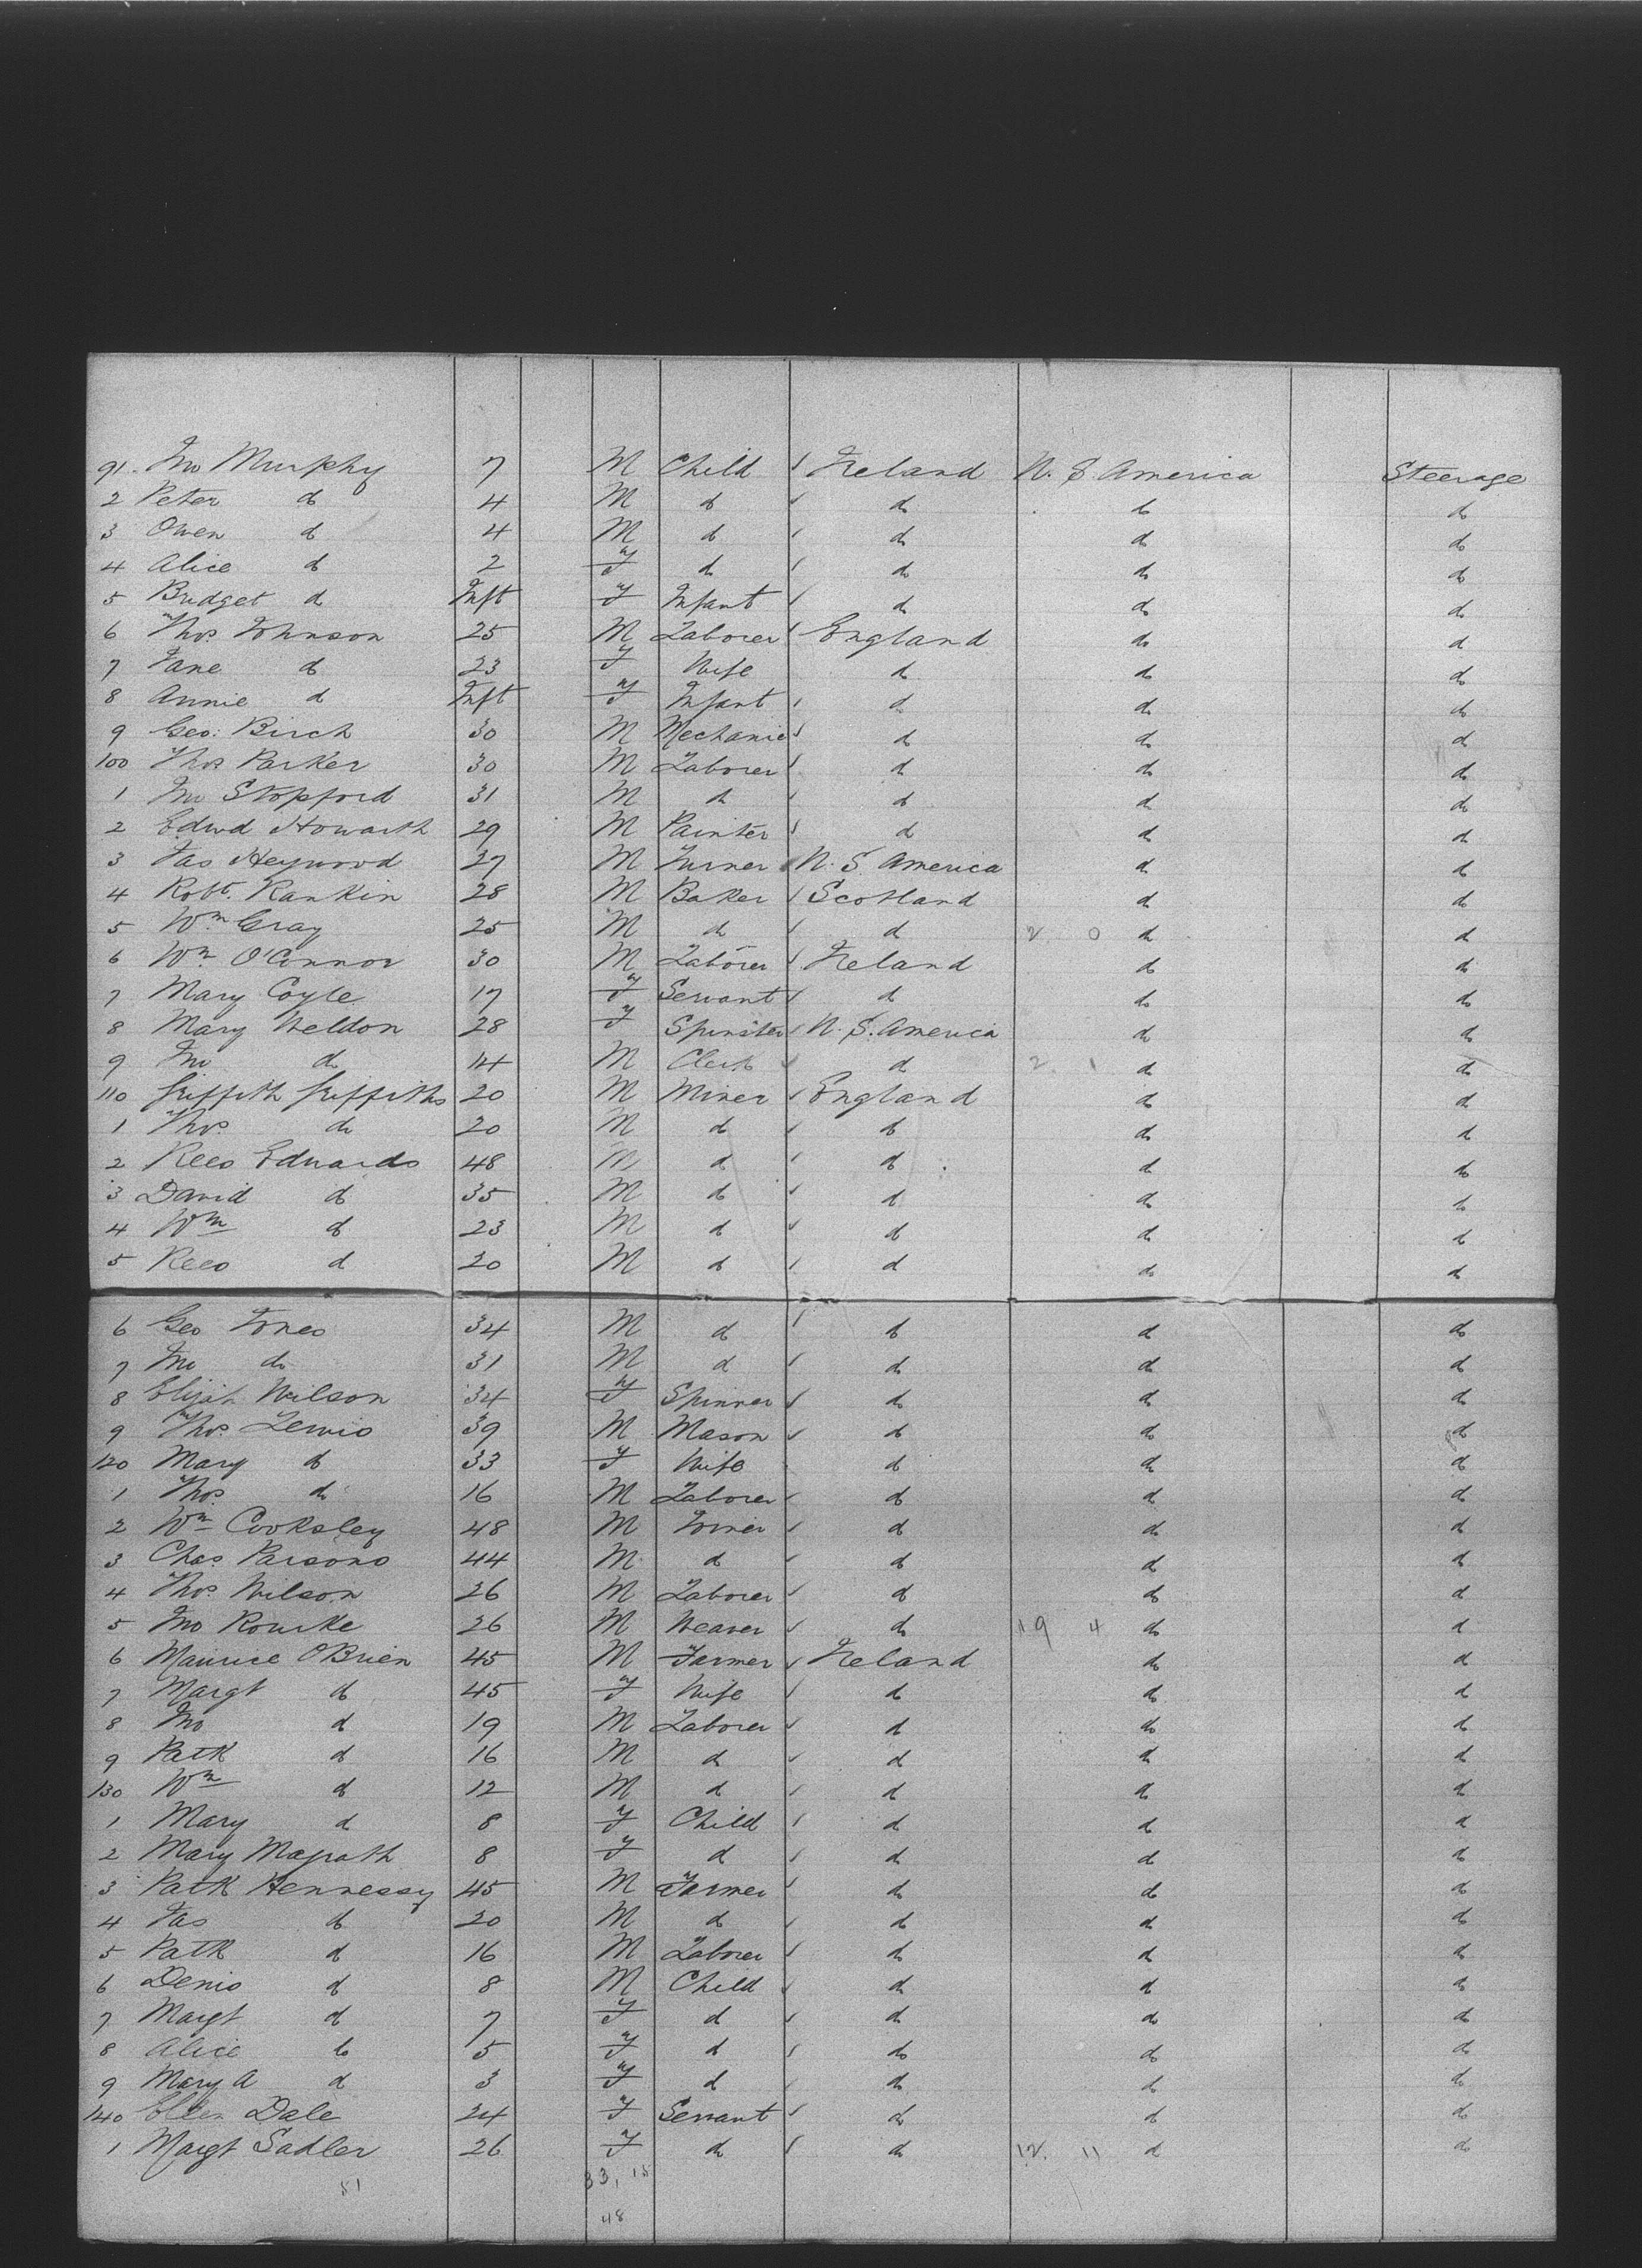 91. Jno Murphy 7 M Child Ireland U. S. America Steerage
2 Peter do 4 M do do do do
3 Owen do 4 M do do do do
4 Alice do 2 F do do do do
5 Bridget do Inft F Infant do do do
6 Thos Johnson 25 M Laborer England do do
7 Jane do 23 F Wife do do do
8 Annie do Inft F Infant do do do
9 Geo: Birch 30 M Mechanic do do do
100 Thos Parker 30 M Laborer do do do
1 Jno Stopford 31 M do do do do
2 Edwd Howarth 29 M Painter do do do
3 Jas Heywood 27 M Turner U. S. America do do
4 Robt. Rankin 28 M Baker Scotland do do
5 Wm Gray 25 M do do 2 0 do do
6 Wm O'Connor 30 M Laborer Ireland do do
7 Mary Coyle 17 F Servant do do do
8 Mary Weldon 28 F Spinster U. S. America do do
9 Jno do 14 M Clerk do 2. 1 do do
110 Griffith Griffiths 20 M Miner England do do
1 Thos do 20 M do do do do
2 Rees Edwards 48 M do do do do
3 David do 35 M do do do do
4 Wm do 23 M do do do do
5 Rees do 20 M do do do do
6 Geo Jones 34 M do do do do
7 Jno do 31 M do do do do
8 Elizth Wilson 34 F Spinner do do do
9 Thos Lewis 39 M Mason do do do
120 Mary do 33 F Wife do do do
1 Thos do 16 M Laborer do do do
2 Wm Cooksley 48 M Joiner do do do
3 Chas Parsons 44 M do do do do
4 Thos Wilson 26 M Laborer do do do
5 Jno Rourke 26 M Weaver do 19 4 do do
6 Maurice O'Brien 45 M Farmer Ireland do do
7 Margt do 45 F Wife do do do
8 Jno do 19 M Laborer do do do
9 Patk do 16 M do do do do
130 Wm do 12 M do do do do
1 Mary do 8 F Child do do do
2 Mary Magrath 8 F do do do do
3 Patk Hennessy 45 M Farmer do do do
4 Jas do 20 M do do do do
5 Patk do 16 M Laborer do do do
6 Denis do 8 M Child do do do
7 Margt do 7 F do do do do
8 Alice do 5 F do do do do
9 Mary A do 3 F do do do do
140 Ellen Dale 24 F Servant do do do
1 Margt Sadler 26 F do do 12. 11 do do
51 33, 18
48